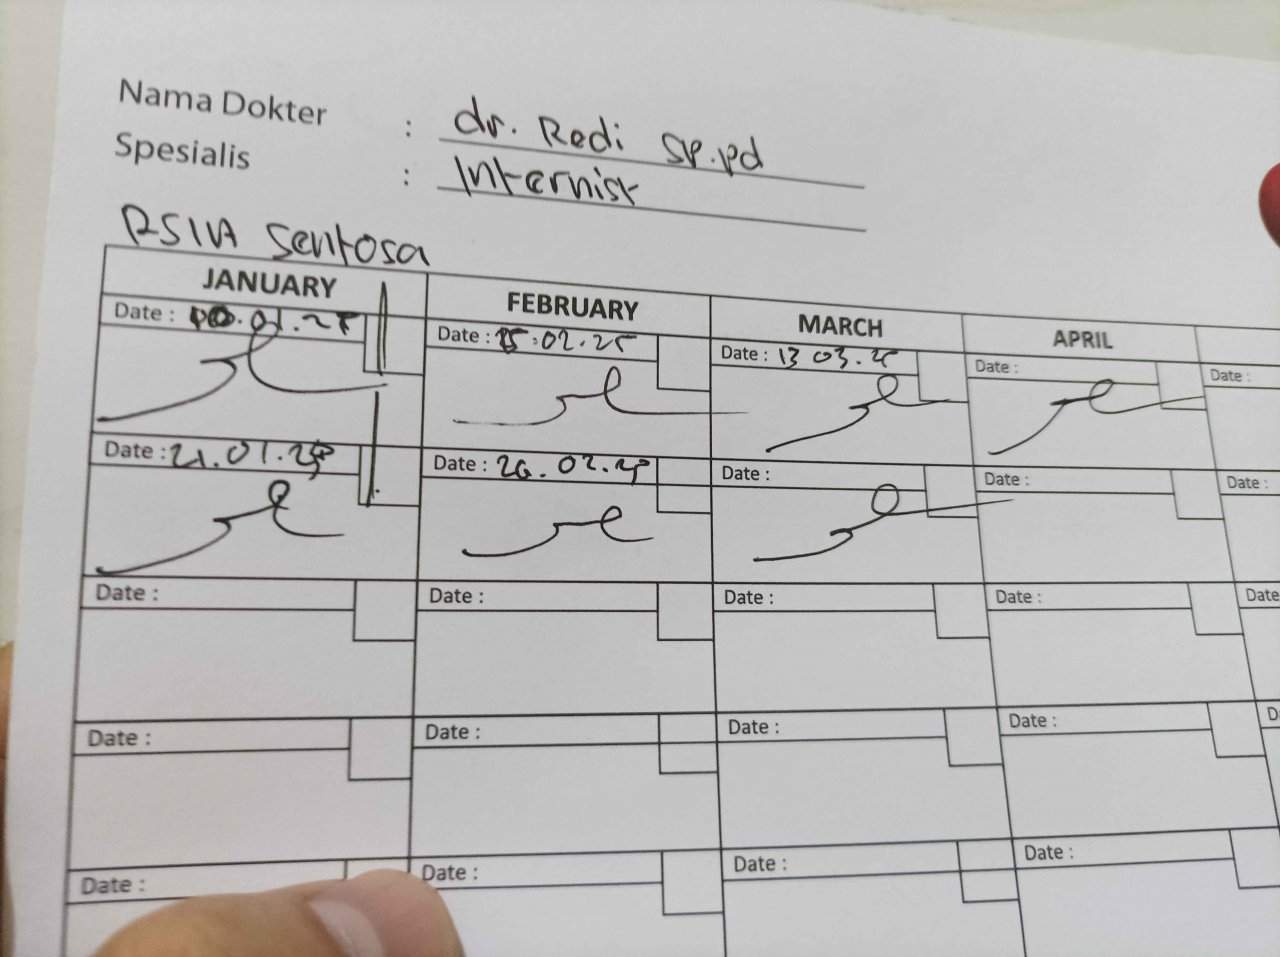 Nama Dokter : dr. Redi SP.pd
Spesialis : Internist
RSIA Sentosa
JANUARY FEBRUARY MARCH APRIL
Date : .01.25 Date : 15.02.25 Date : 13 03.25 Date : Date :
Date : 21.01.25 Date : 26.02.25 Date : Date : Date :
Date : Date : Date : Date : Date
Date : Date : Date : Date : D
Date : Date : Date : Date :